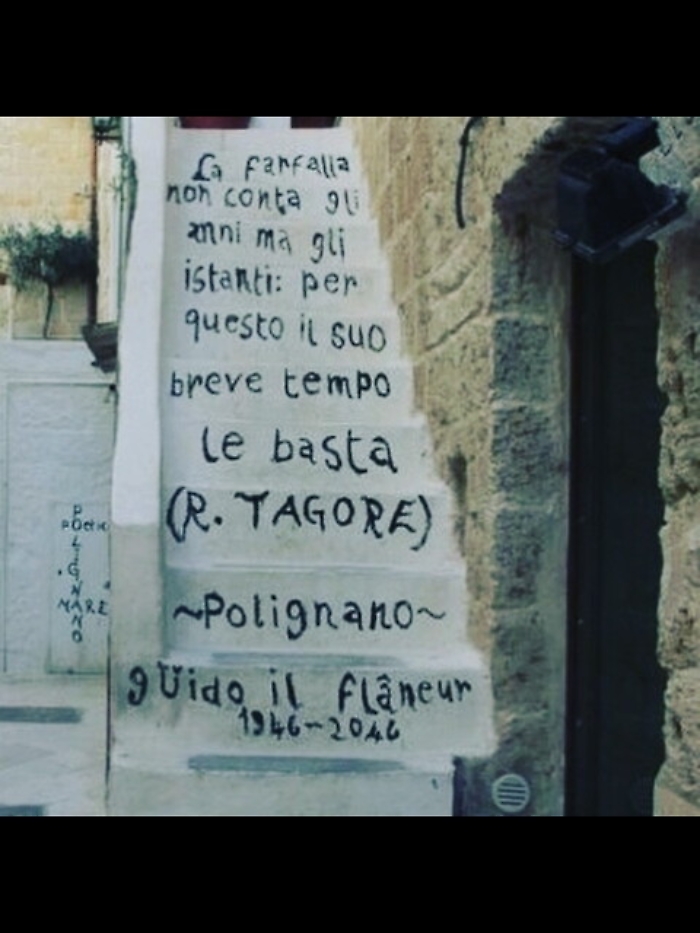 La farfalla
non conta gli
anni ma gli
istanti: per
questo il suo
breve tempo
le basta
(R. TAGORE)
~Polignano~
gUido il flâneur
1946-2046
POLIGNANO
MARE